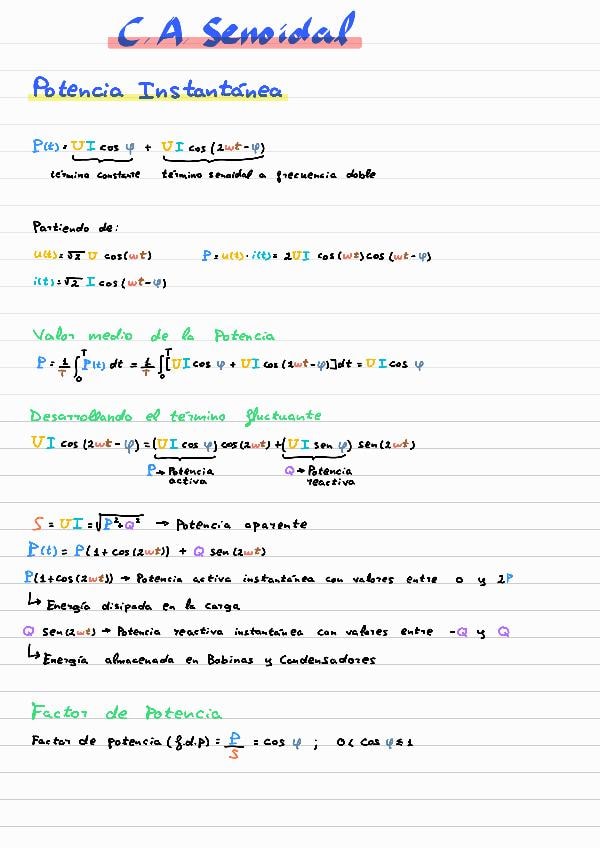 C.A. Senoidal
Potencia Instantánea
P(t) = UI cos φ + UI cos (2wt-φ)
término constante término senoidal a frecuencia doble
Partiendo de:
u(t) = √2 U cos(wt) P = u(t) · i(t) = 2UI cos(wt) cos (wt-φ)
i(t) = √2 I cos (wt-φ)
Valor medio de la Potencia
P = 1/T ∫₀ᵀ P(t) dt = 1/T ∫₀ᵀ [UI cos φ + UI cos (2wt-φ)] dt = UI cos φ
Desarrollando el término fluctuante
UI cos (2wt-φ) = (UI cos φ) cos (2wt) + (UI sen φ) sen (2wt)
P → Potencia activa Q → Potencia reactiva
S = UI = √P²+Q² → Potencia aparente
P(t) = P(1 + cos (2wt)) + Q sen (2wt)
P(1+cos (2wt)) → Potencia activa instantánea con valores entre 0 y 2P
↳ Energía disipada en la carga
Q sen (2wt) → Potencia reactiva instantánea con valores entre -Q y Q
↳ Energía almacenada en Bobinas y Condensadores
Factor de Potencia
Factor de potencia (f.d.p) = P/S = cos φ ; 0 < cos φ ≤ 1